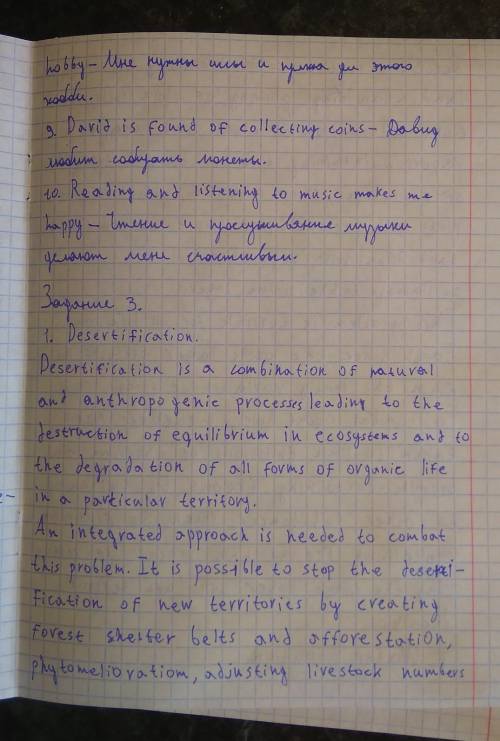 hobby – Мне нужны иглы и пряжа для этого
хобби.
9. David is found of collecting coins – Давид
любит собирать монеты.
10. Reading and listening to music makes me
happy – Чтение и прослушивание музыки
делают меня счастливым.
Задание 3.
1. Desertification.
Desertification is a combination of natural
and anthropogenic processes leading to the
destruction of equilibrium in ecosystems and to
the degradation of all forms of organic life
in a particular territory.
An integrated approach is needed to combat
this problem. It is possible to stop the deserti-
fication of new territories by creating
forest shelter belts and afforestation,
phytomelioratiom, adjusting livestock numbers